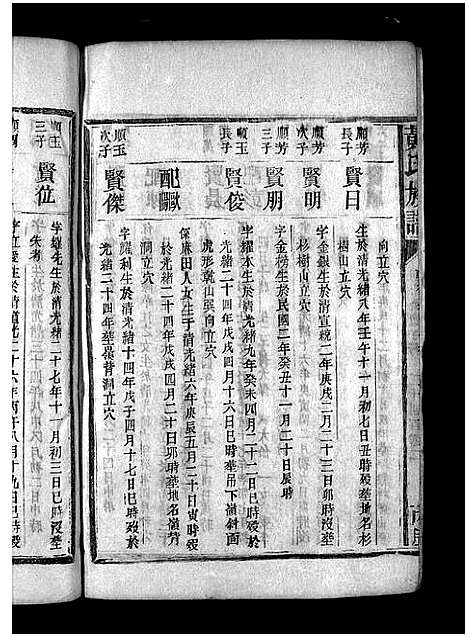 黃氏族譜
向立穴
順芳長子
賢日
生於清光緒八年壬午十一月初七日丑時殁葬地名杉
樹山立穴
順芳次子
賢明
字金銀生於清宣統二年庚戌二月二十三日卯時殁葬
杉樹山立穴
順芳三子
賢朋
字金榜生於民國二年癸丑十二月二十日辰時
順玉長子
賢俊
字耀本生於清光緒九年癸未四月二十二日巳時殁於
光緒二十四年戊戌四月十六日巳時葬吊下嶺斜面
虎形乾山巽向立穴
配歐
保庶田人女生于清光緒六年庚辰五月二十日寅時殁
於光緒二十四年戊戌四月二十日卯時葬地名嶺背
洞立穴
順玉次子
賢傑
字耀利生於清光緒十四年戊子四月十七日巳時殁於
光緒二十四年葬嶺背洞立穴
順玉三子
賢位
字耀先生於清光緒二十七年十一月初三日巳時沒葬
失考